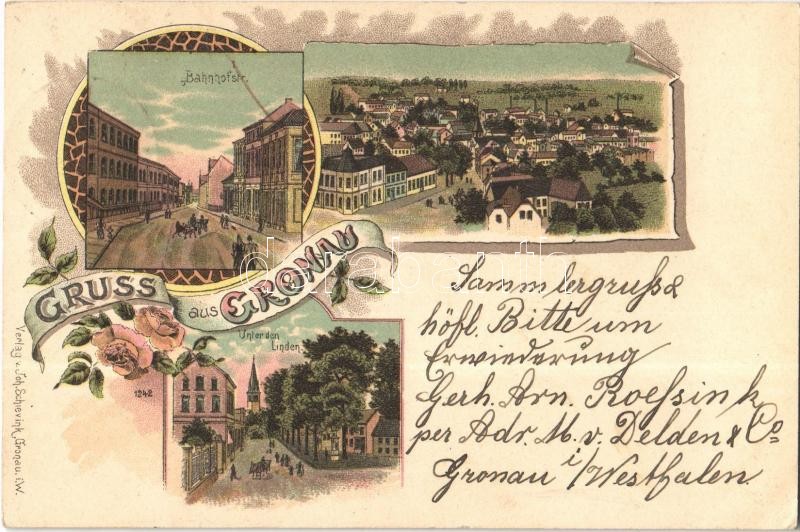 Bahnhofstr.
GRUSS aus GRONAU
Unter den
Linden
1242
Verlag v. Joh. Schievink, Gronau. i. W.
Sammlergruß &
höfl. Bitte um
Erwiederung
Gerh. Arn. Roeſsink
per Adr. M. v. Delden & Co
Gronau i/Westfalen.
darabanth